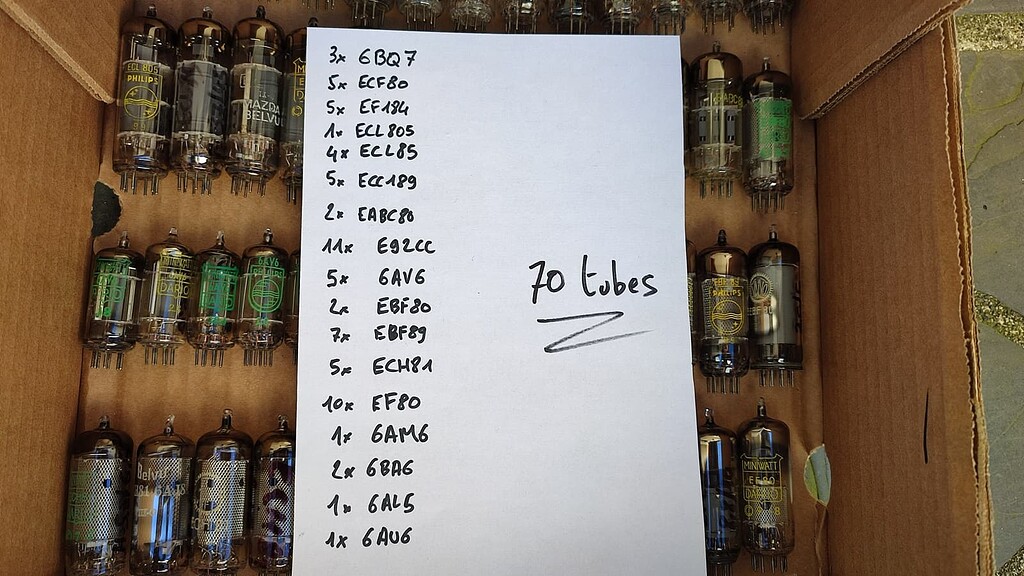 3x 6BQ7
5x ECF80
5x EF184
1x ECL805
4x ECL85
5x ECC189
2x EABC80
11x E92CC
5x 6AV6
2x EBF80
7x EBF89
5x ECH81
10x EF80
1x 6AM6
2x 6BA6
1x 6AL5
1x 6AU6
70 tubes
ECL 805
PHILIPS
MAZDA
BELVU
DARIO
PHILIPS
Belvu
MINIWATT
EF80
DARIO